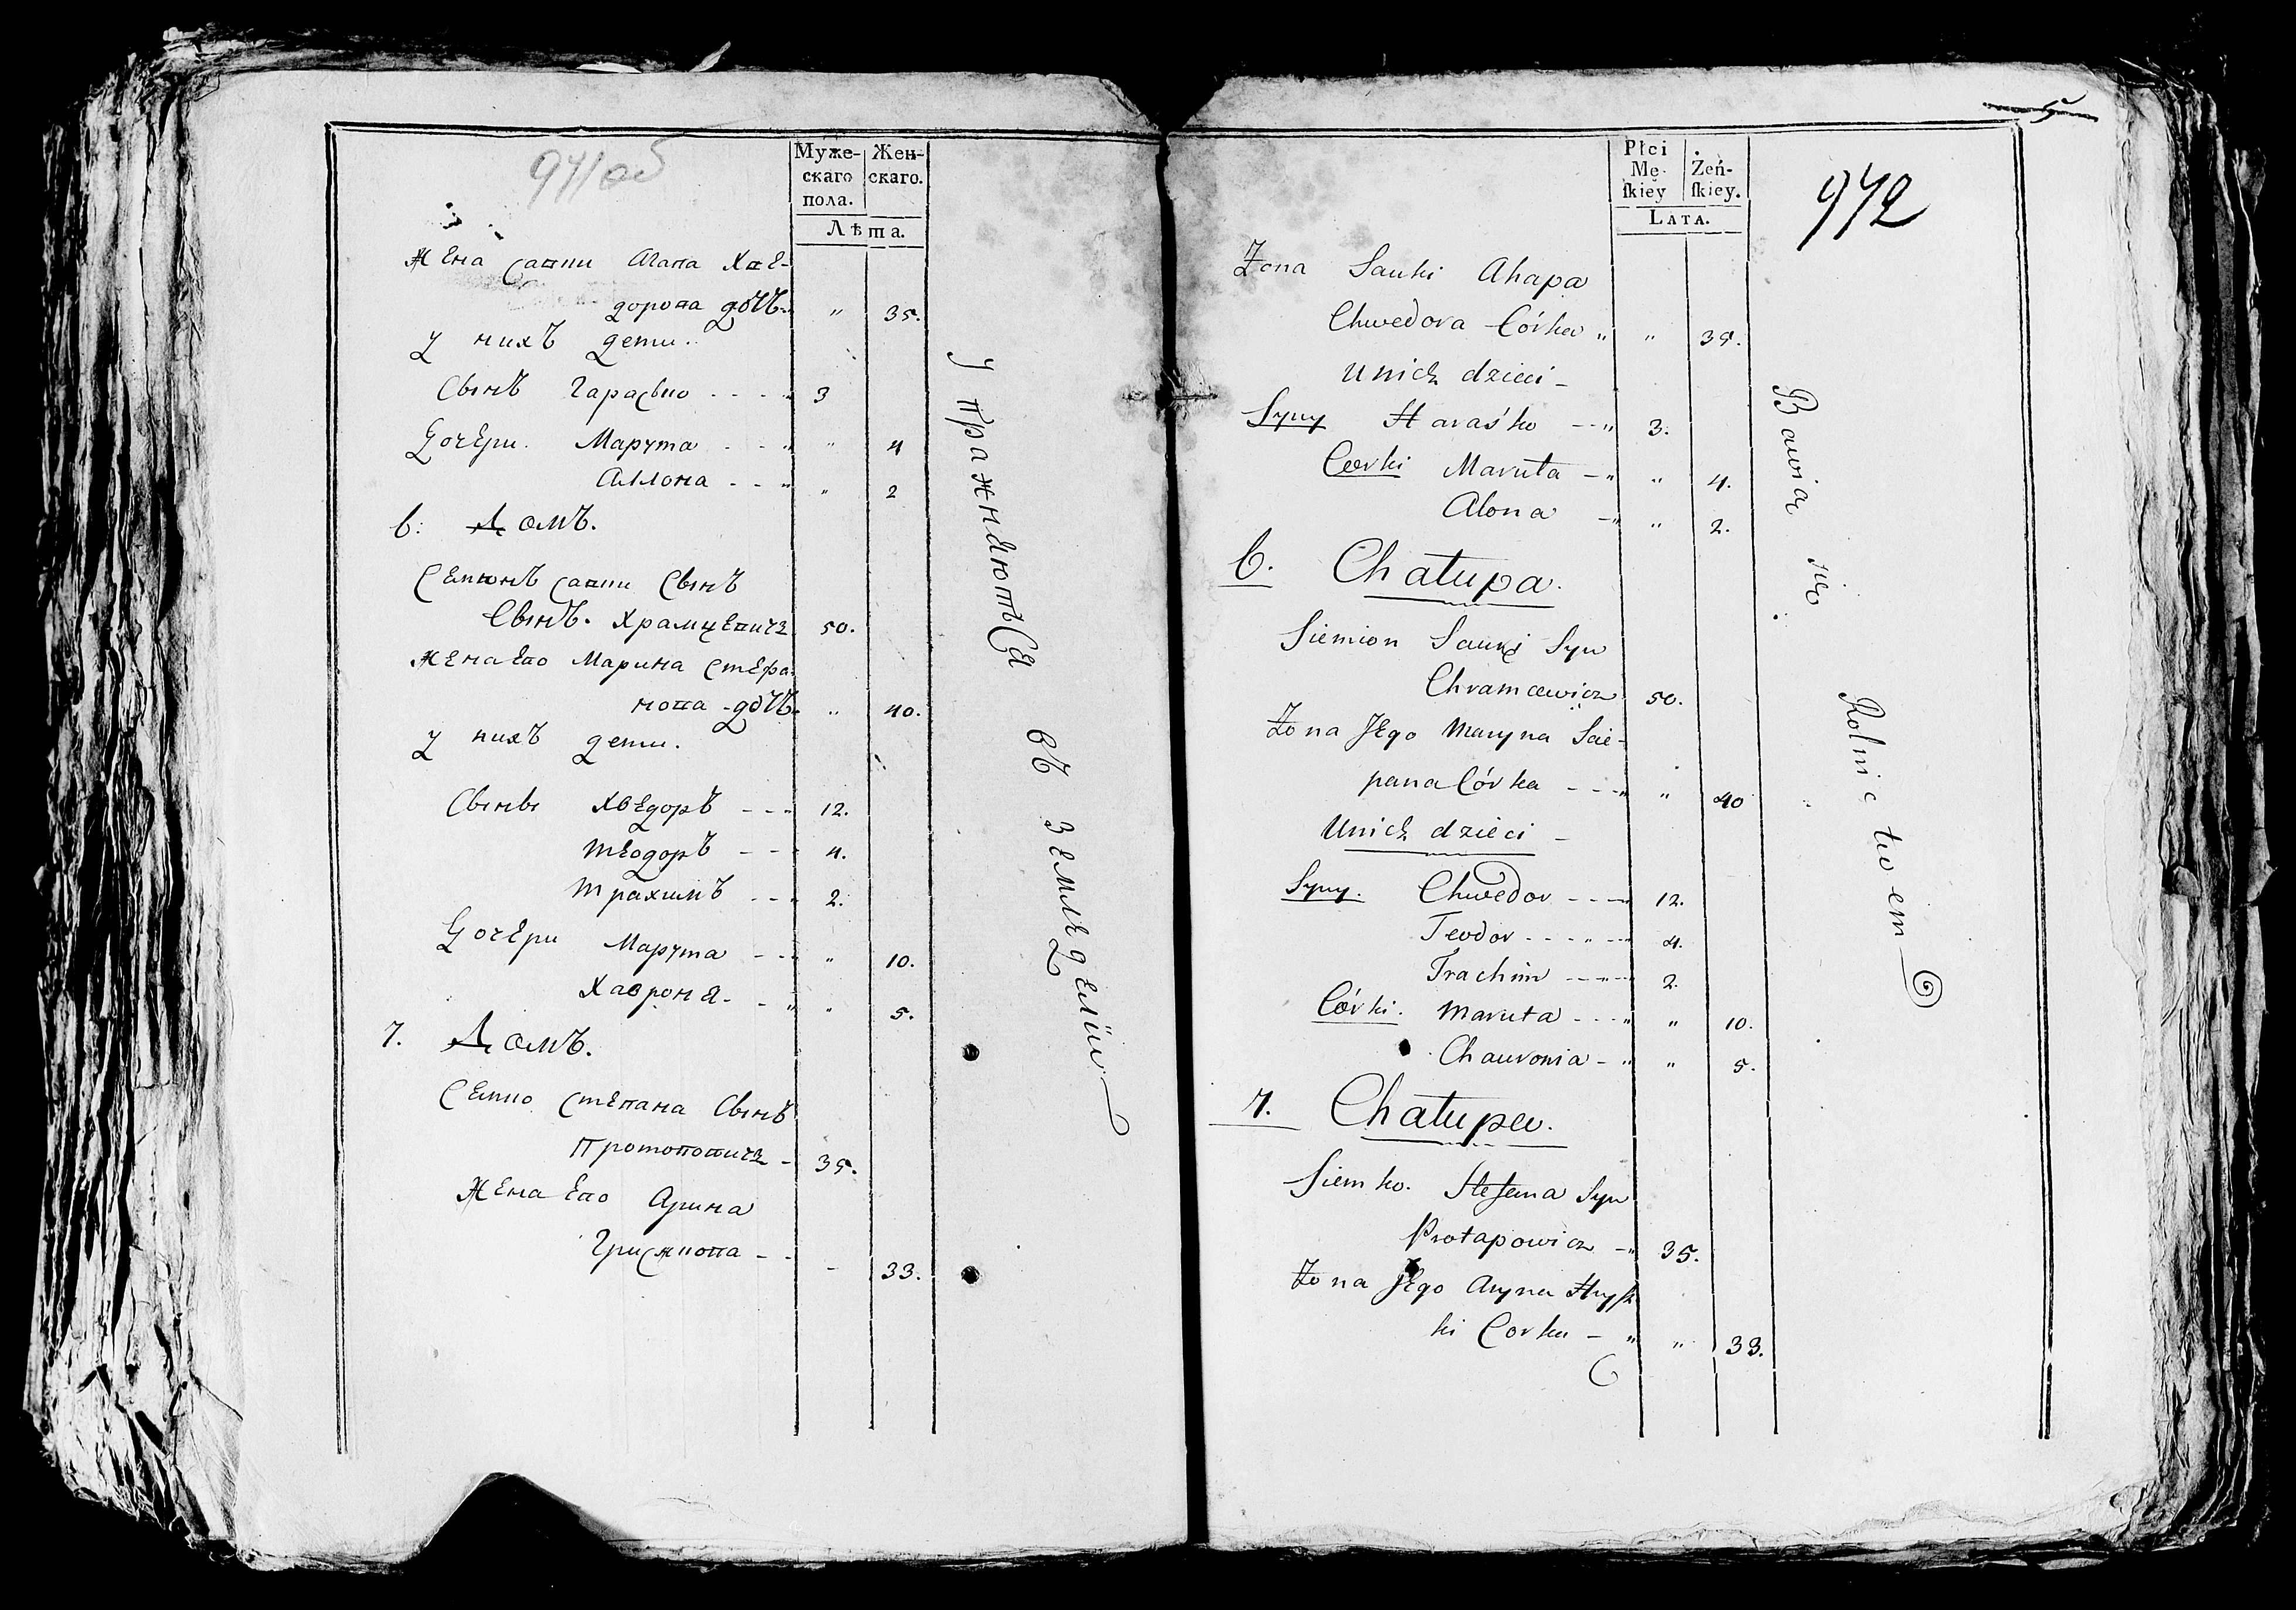 971 об
Муже-
скаго
пола.
Жен-
скаго.
Лѣта.
Жена Савки Агапа Хве-
дорова дочь " 35.
У нихъ дети.
Сынъ Гарасько - - - " 3
Дочери. Марута - - - " " 4
Аллона - - " " 2
6: Домъ.
Семионъ Савки Сынъ
Сынъ. Храмцевичъ 50.
Жена Его Марина Стефа-
нова дочь " 40.
У нихъ дети.
Сыны Хведоръ - - - 12.
Теодоръ - - - 4.
Трахимъ - - - 2.
Дочери Марута - - - " 10.
Хаврониа - - " " 5.
7. Домъ.
Семко Степана Сынъ
Протоповичъ - 35.
Жена Его Арина
Грисжкова - - - 33.
УпражняютьСя въ земляделіи
5
972
Płci
Mę-
ſkiey
Żeń-
ſkiey.
Lata.
Zona Sauki Ahapa
Chwedora Córka " " 35.
Unich dzieci -
Syny Haraśko - - " 3.
Corki Maruta - " " 4.
Alona - " " 2.
6. Chałupa.
Siemion Sauki Syn
Chramcewicz 50.
Zona Jego Maryna Scie-
pana Córka - - - " " 40
Unich dzieci -
Syny. Chwedor - - - 12.
Teodor - - - - - 4.
Trachim - - - - 2.
Córki. Maruta - - - " " 10.
Chauronia - " " 5.
7. Chałupa.
Siemko. Stefana Syn
Protapowicz - " 35.
Zona Jego Aryna Hryſz
ki Corka - " " 33.
Bawią się Rolnictwem